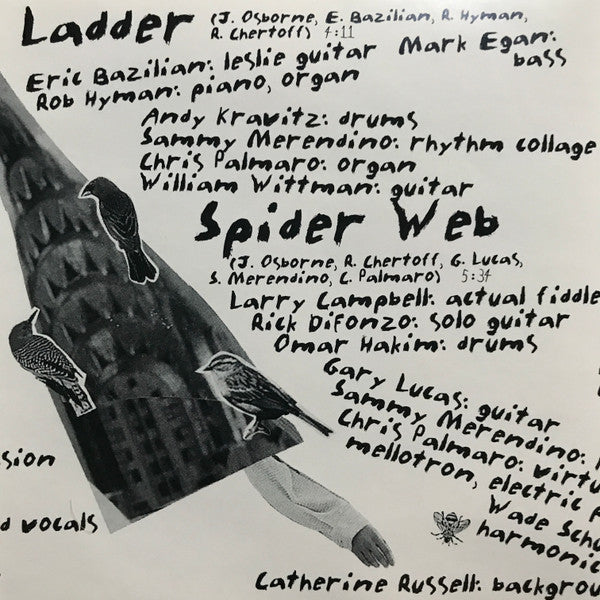 Ladder (J. Osborne, E. Bazilian, R. Hyman,
R. Chertoff) 4:11
Eric Bazilian: leslie guitar Mark Egan:
bass
Rob Hyman: piano, organ
Andy Kravitz: drums
Sammy Merendino: rhythm collage
Chris Palmaro: organ
William Wittman: guitar
Spider Web
(J. Osborne, R. Chertoff, G. Lucas,
S. Merendino, C. Palmaro) 5:34
Larry Campbell: actual fiddle
Rick DiFonzo: solo guitar
Omar Hakim: drums
Gary Lucas: guitar
Sammy Merendino:
Chris Palmaro: virtu
mellotron, electric
Wade Schu
harmonic
sion
d vocals
Catherine Russell: backgrou